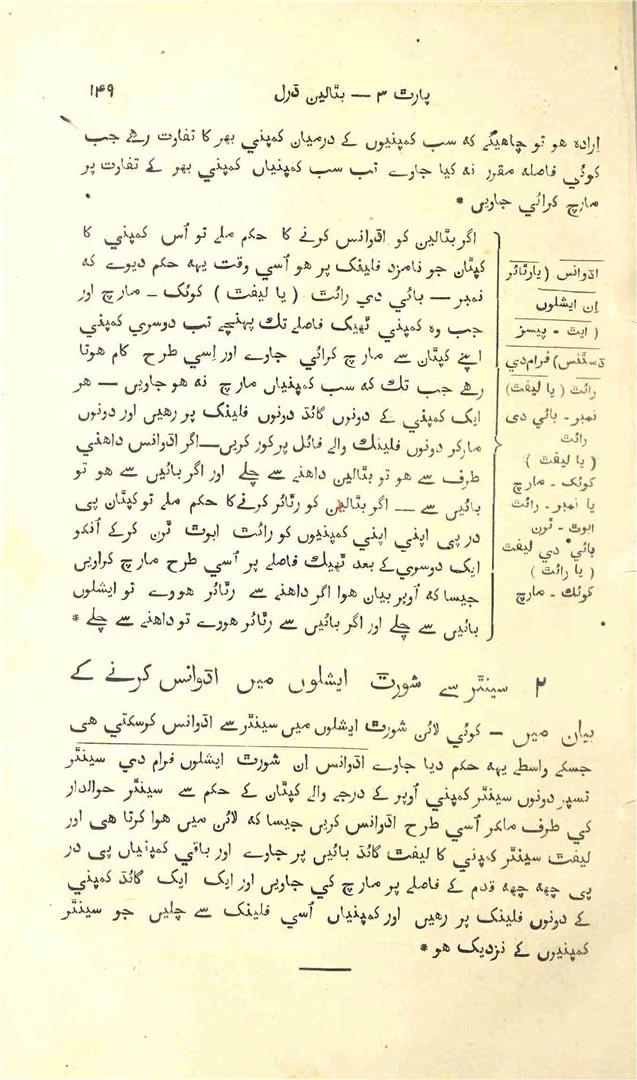 پارٹ ٣ — بٹالین ڈرل
١٤٩
اِرادہ ہو تو چاهیئے کہ سب کمپنیوں کے درمیان کمپني بھر کا تفاوت رهے جب
کوئي فاصلہ مقرر نہ کیا جاوے تب سب کمپنیاں کمپني بھر کے تفاوت پر
مارچ کرائي جاویں *
اگر بٹالین کو اڈوانس کرنے کا حکم ملے تو اُس کمپني کا
کپتان جو نامزد فلینک پر هو اُسي وقت یهہ حکم دیوے کہ
نمبر — بائي دي رائٹ ( یا لیفٹ ) کوئک - مارچ اور
جب وہ کمپني ٹھیک فاصلے تك پہنچے تب دوسري کمپني
اپنے کپتان سے مارچ کرائي جاوے اور اِسي طرح کام هوتا
رهے جب تك کہ سب کمپنیاں مارچ نہ هو جاویں — هر
ایک کمپني کے دونوں گائڈ دونوں فلینک پر رهیں اور دونوں
مارکر دونوں فلینك والے فائل پر کور کریں — اگر اڈوانس داهني
طرف سے هو تو بٹالین داهنے سے چلے اور اگر بائیں سے هو تو
بائیں سے — اگر بٹالین کو رٹائر کرنے کا حکم ملے تو کپتان پی
در پی اپني اپني کمپنیوں کو رائٹ ابوٹ ٹرن کرکے اُنکو
ایک دوسري کے بعد ٹھیك فاصلے پر اُسي طرح مارچ کراویں
جیسا کہ اُوپر بیان هوا اگر داهنے سے رٹائر هووے تو ایشلوں
بائیں سے چلے اور اگر بائیں سے رٹائر هووے تو داهنے سے چلے *
اڈوانس ( یا رٹائر
اِن ایشلوں
( ایٹ - پیسز
ڈسٹنس ) فرام دي
رائٹ ( یا لیفٹ )
نمبر - بائي دی
رائٹ
( یا لیفٹ )
کوئک - مارچ
یا نمبر - رائٹ
ابوٹ - ٹرن
بائي دي لیفٹ
( یا رائٹ )
کوئك - مارچ
٢ سینٹر سے شورٹ ایشلوں میں اڈوانس کرنے کے
بیان میں — کوئي لائن شورٹ ایشلوں میں سینٹر سے اڈوانس کرسکتي هی
جسکے واسطے یهہ حکم دیا جاوے اڈوانس اِن شورٹ ایشلوں فرام دي سینٹر
تسپر دونوں سینٹر کمپني اُوپر کے درجے والے کپتان کے حکم سے سینٹر حوالدار
کي طرف ملکر اُسي طرح اڈوانس کریں جیسا کہ لائن میں هوا کرتا هی اور
لیفٹ سینٹر کمپني کا لیفٹ گائڈ بائیں پر جاوے اور باقي کمپنیاں پی در
پی چهہ چهہ قدم کے فاصلے پر مارچ کي جاویں اور ایک ایک گائڈ کمپني
کے دونوں فلینک پر رهیں اور کمپنیاں اُسي فلینک سے چلیں جو سینٹر
کمپنیوں کے نزدیک هو *